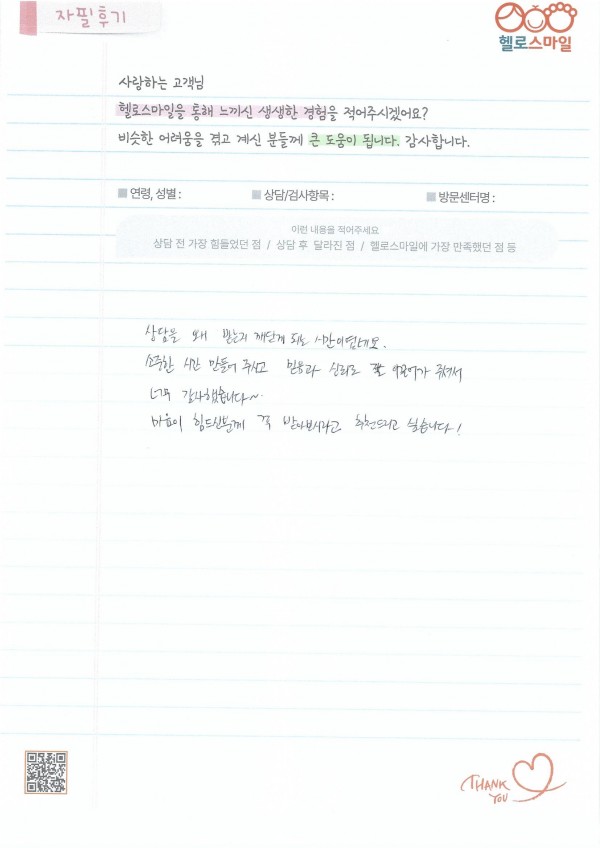 자필후기
헬로스마일
사랑하는 고객님
헬로스마일을 통해 느끼신 생생한 경험을 적어주시겠어요?
비슷한 어려움을 겪고 계신 분들께 큰 도움이 됩니다. 감사합니다.
연령, 성별 : 상담/검사항목 : 방문센터명 :
이런 내용을 적어주세요
상담 전 가장 힘들었던 점 / 상담 후 달라진 점 / 헬로스마일에 가장 만족했던 점 등
상담을 왜 받는지 깨닫게 되는 시간이였네요.
소중한 시간 만들어 주시고 믿음과 신뢰로 이끌어가 주셔서
너무 감사했습니다~
마음이 힘드신분께 꼭 받아보시라고 추천드리고 싶습니다!
THANK YOU